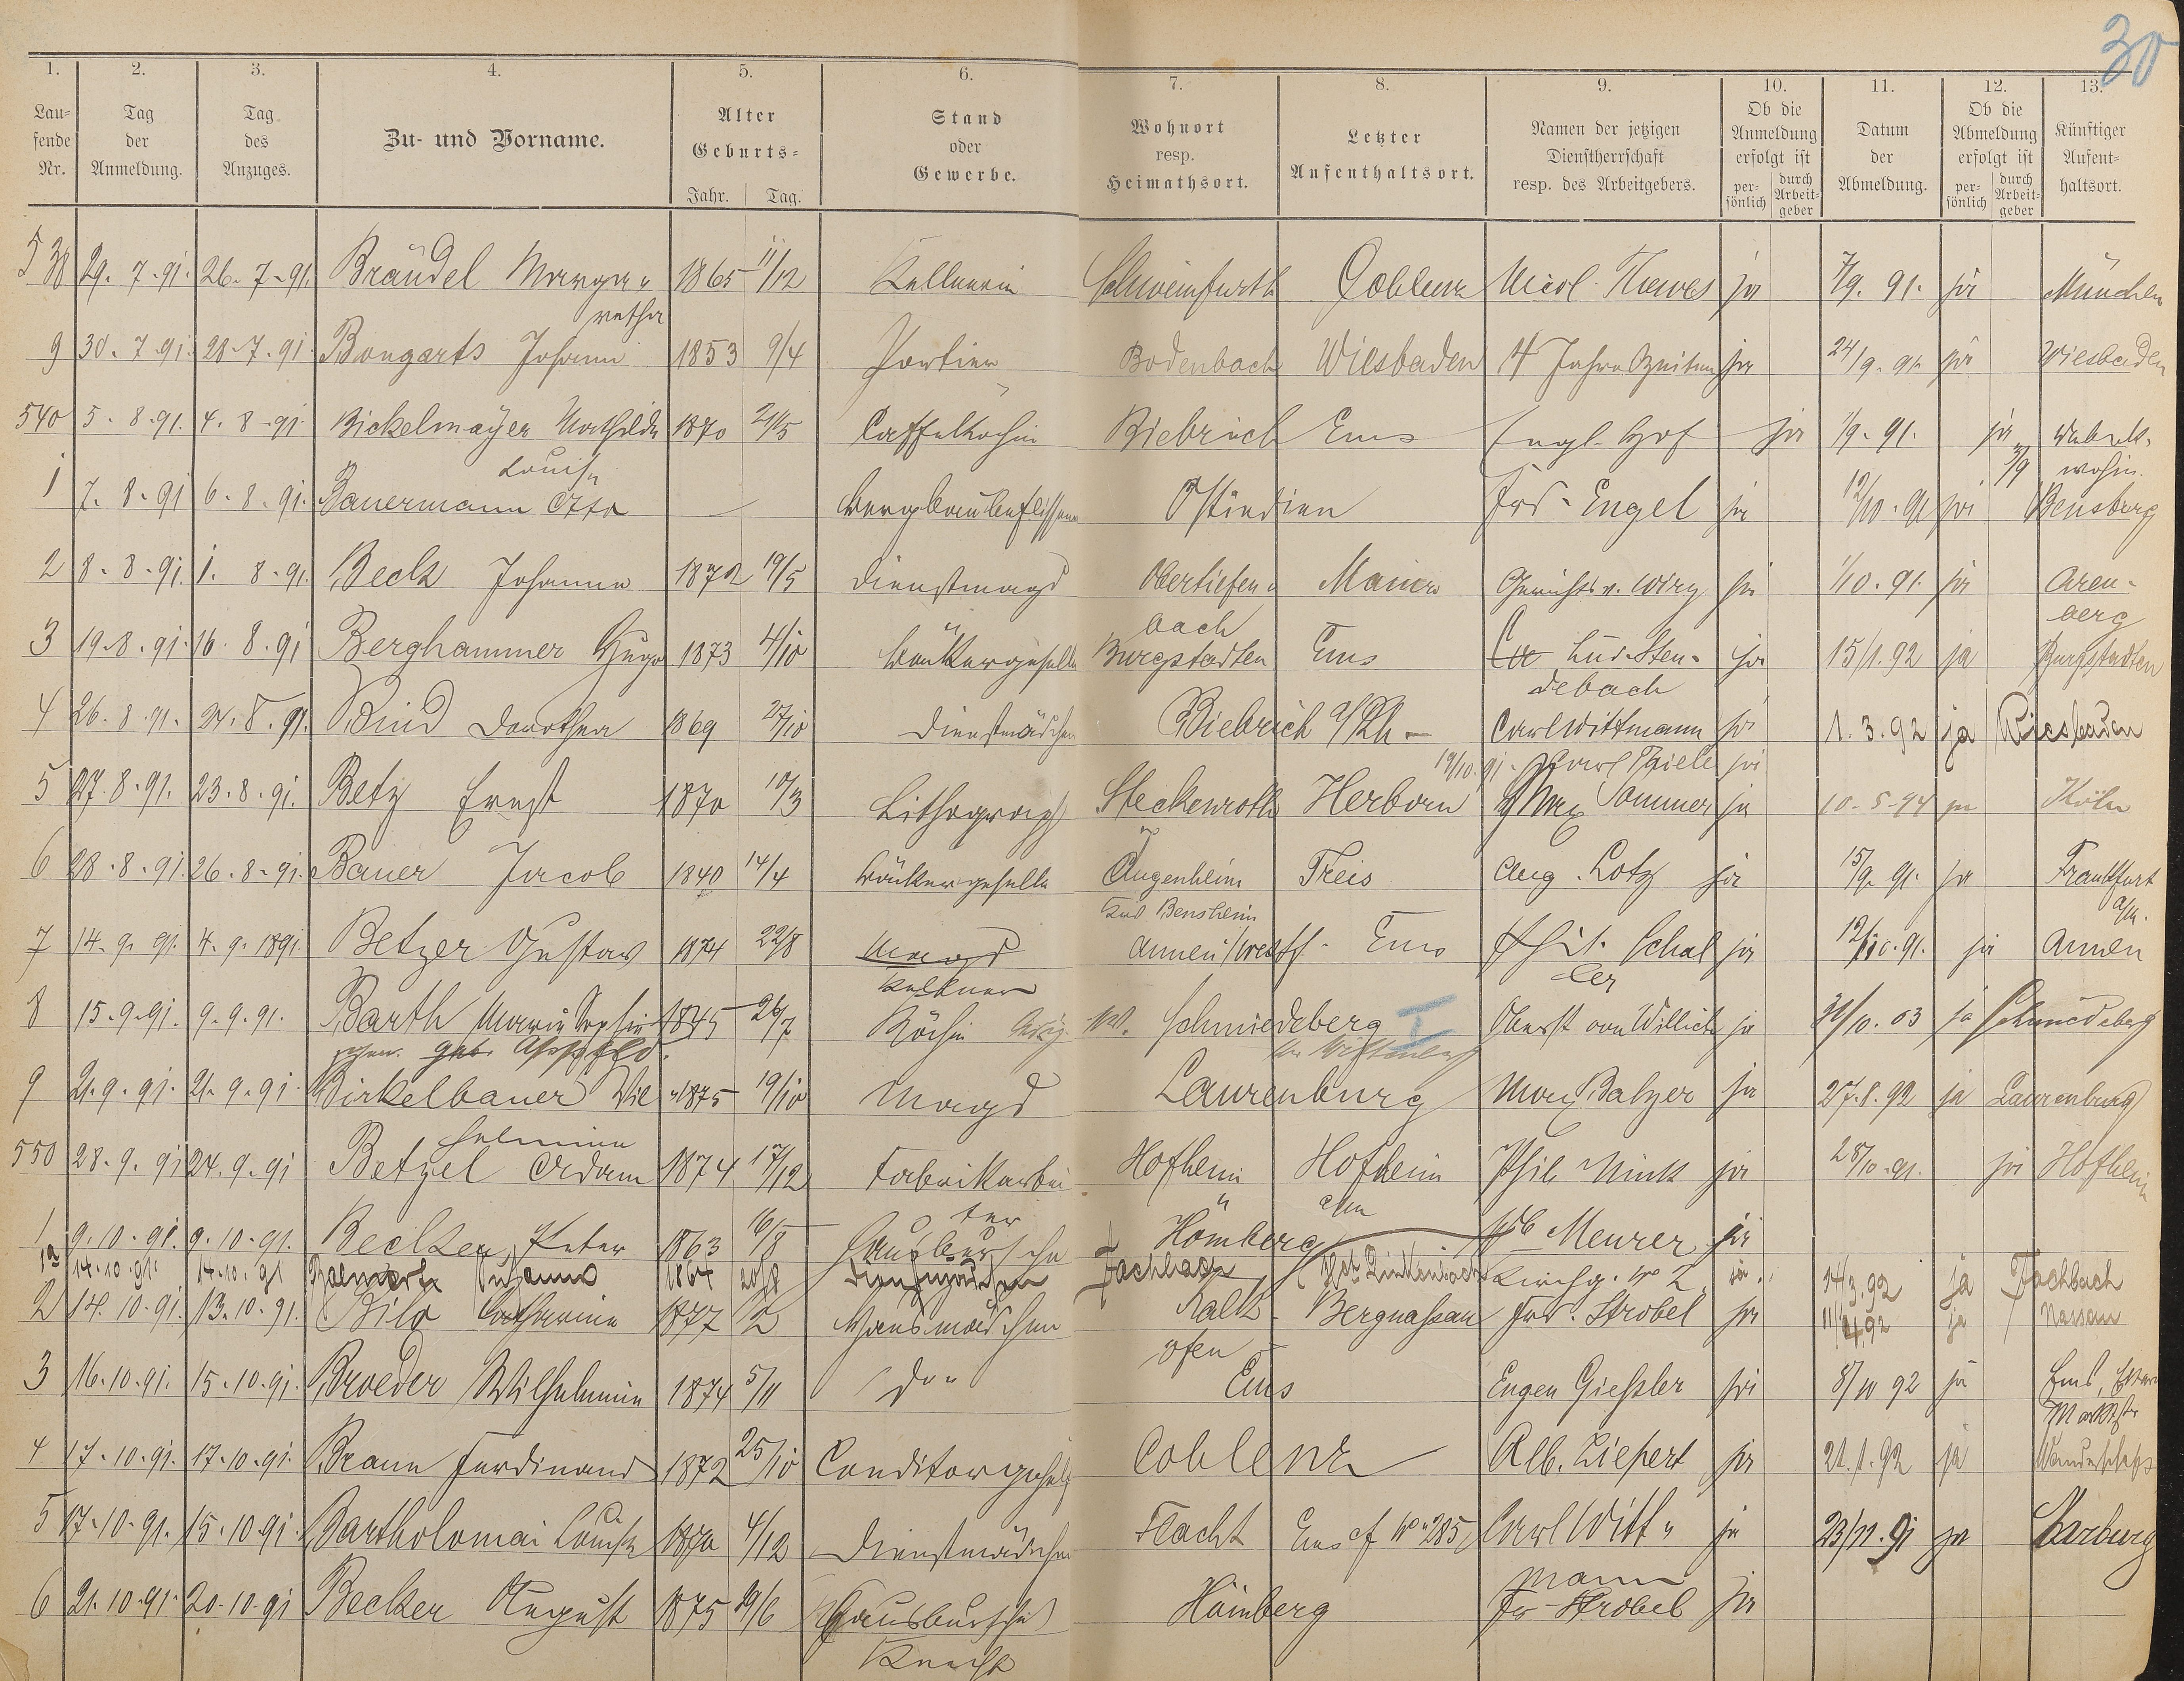 30
1. 2. 3. 4. 5. 6. 7. 8. 9. 10. 11. 12. 13.
Laufende Nr. Tag der Anmeldung. Tag des Anzuges. Zu- und Vorname. Alter Geburts= Jahr. Tag. Stand oder Gewerbe. Wohnort resp. Heimathsort. Letzter Aufenthaltsort. Namen der jetzigen Dienstherrschaft resp. des Arbeitgebers. Ob die Anmeldung erfolgt ist persönlich durch Arbeitgeber Datum der Abmeldung. Ob die Abmeldung erfolgt ist persönlich durch Arbeitgeber Künftiger Aufenthaltsort.
538 29. 7. 91. 26. 7. 91. Bräudel Marga- 1865 11/12 Kellnerin Schweinfurth Coblenz Nicol. ja 7/9. 91. ja München
retha
9 30. 7. 91. 28. 7. 91. Bongarts Johann 1853 9/4 Portier Bodenbach Wiesbaden 4 Jahres Zeiten ja 24/9. 91. ja Wiesbaden
540 5. 8. 91. 4. 8. 91. Bickelmayer Mathilde 1870 21/5 Caffeeköchin Biebrich Ems Engl. Hof ja 1/9. 91. ja
Louise 3/9 wohin.
1 7. 8. 91 6. 8. 91. Bauermann Otto — Bergbaubeflissener Ostindien Frd. Engel ja 12/10. 91 ja Bensberg
2 8. 8. 91. 1. 8. 91. Beck Johanna 1872 19/5 Dienstmagd Obertiefen- Mainz ja 1/10. 91. ja Aren-
bach berg
3 19. 8. 91. 16. 8. 91 Berghammer Hugo 1873 4/10 Bäckergeselle Burgstadten Ems Lud. Sten- ja 15/1. 92 ja Burgstadten
debach
4 26. 8. 91. 24. 8. 91. Bind Dorothea 1869 27/10 Dienstmädchen Biebrich a/Rh. — Carl Wittmann ja 1. 3. 92 ja Wiesbaden
19/10. 91. Carl Thiele ja
5 27. 8. 91. 23. 8. 91. Betz Ernst 1870 10/3 Lithograph Steckenroth Herborn Max Sommer ja 10. 5. 94 ja Köln
6 28. 8. 91. 26. 8. 91. Bauer Jacob 1840 14/4 Bäckergeselle Äugenheim Treis Aug. Lotz ja 15/9. 91. ja Frankfurt
Bensheim a/M.
7 14. 9. 91. 4. 9. 1891. Betzer Gustav 1874 22/8 Magd Annen/Westf. Ems Schal- ja 12/10. 91. ja Annen
Kellner ler
8 15. 9. 91. 9. 9. 91. Barth Marie Sophie 1845 26/7 Köchin Schmiedeberg I Oberst von Willich ja 31/10. 03 ja Schmiedeberg
geb.
9 21. 9. 91. 21. 9. 91 Birkelbauer Wil- 1875 19/10 Magd Laurenburg Max Balzer ja 27. 8. 92 ja Laurenburg
helmine
550 28. 9. 91 24. 9. 91 Betzel Adam 1874 17/12 Fabrikarbei- Hofheim Hofheim Phil. Mink ja 28/10. 91. ja Hofheim
ter
1 9. 10. 91. 9. 10. 91. Becker, Peter 1863 16/8 Hausbursche Hömberg Meurer ja
1a 14. 10. 91. 14. 10. 91 Susanna 1864 Dienstmädchen Fachbach ja 14/3. 92 ja Fachbach
2 14. 10. 91. 13. 10. 91. Bilo Catharine 1877 Hausmädchen Kalk- Bergnassau Frd. Strobel ja 11/4. 92 ja Nassau
ofen
3 16. 10. 91. 15. 10. 91. Broeder Wilhelmine 1874 5/11 do " Ems Eugen Gießler ja 8/10 92 ja Ems,
Marktstr
4 17. 10. 91. 17. 10. 91. Braun Ferdinand 1872 25/10 Conditorgehilfe Coblenz Alb. Liepert ja 21. 1. 92 ja Wanderschaft
5 17. 10. 91. 15. 10. 91. Bartholomai Louise 1870 4/12 Dienstmädchen Flacht Ems cf No 285 Carl Witt- ja 23/11. 91 ja
mann
6 21. 10. 91. 20. 10. 91 Becker August 1875 29/6 Hausbursche Hömberg Fr. Strobel ja
Knecht